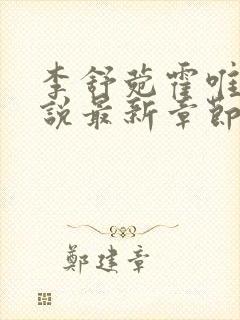 李舒菀霍唯
說最新章節
鄭建章